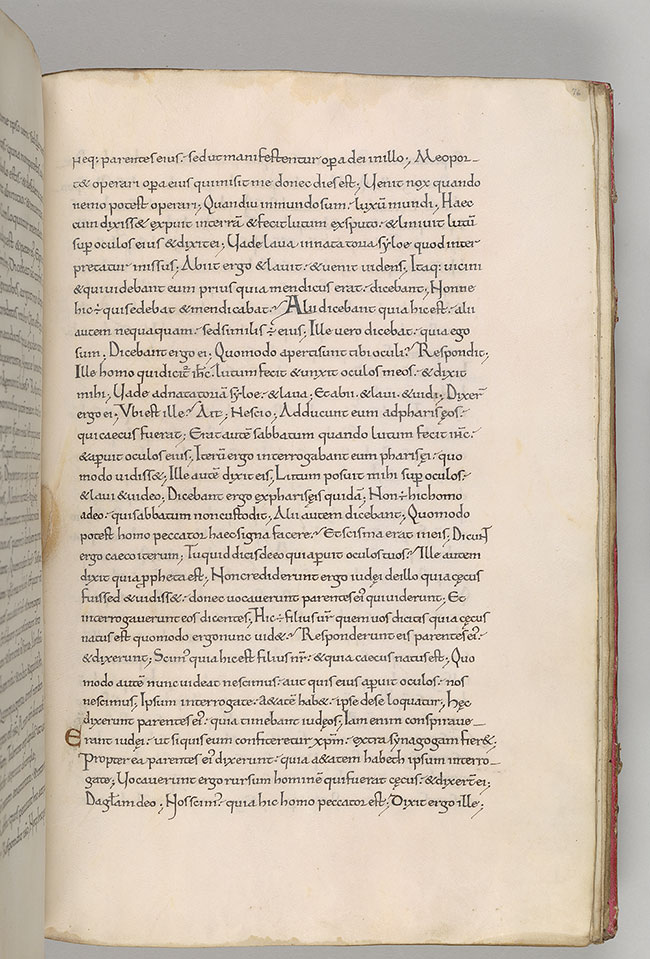 76
neq; parentes eius. sed ut manifestentur opa dei in illo; Me opor_
t& operari opa eius qui misit me donec dies est; Uenit nox quando
nemo potest operari; Quandiu in mundo sum. lux sū mundi; Haec
cum dixiss& expuit in terrā & fecit lutum ex sputo. & liniuit lutū
sup oculos eius & dixit ei; Uade laua in natatoria syloe quod inter
pretatur missus; Abiit ergo & lauit. & uenit uidens; Itaq; uicini
& qui uidebant eum prius quia mendicus erat. dicebant; Nonne
hic ÷ qui sedebat & mendicabat? Alii dicebant quia hic est. alii
autem nequaquam. sed similis ÷ eius; Ille uero dicebat. quia ego
sum; Dicebant ergo ei; Quomodo aperti sunt tibi oculi? Respondit;
Ille homo qui dicit̄ ihc. lutum fecit & unxit oculos meos. & dixit
mihi; Uade ad natatoriā syloe. & laua; Et abii. & laui. & uidi; Dixer̄
ergo ei; Vbi est ille? Ait; Nescio; Adducunt eum ad pharisęos.
qui caecus fuerat; Erat autē sabbatum quando lutum fecit ihc.
& apuit oculos eius; Iterū ergo interrogabant eum pharisęi. quo
modo uidiss&; Ille autē dixit eis; Lutum posuit mihi sup oculos.
& laui & uideo; Dicebant ergo ex pharisęis quidā; Non ÷ hic homo
a deo. qui sabbatum non custodit; Alii autem dicebant; Quomodo
potest homo peccator haec signa facere? Et scisma erat in eis; Dicunt
ergo caeco iterum; Tu quid dicis de eo qui apuit oculos tuos? Ille autem
dixit quia ppheta est; Non crediderunt ergo iudęi de illo quia cęcus
fuisset & uidiss&. donec uocauerunt parentes ei' qui uiderunt; Et
interrogauerunt eos dicentes; Hic ÷ filius ur̄ quem uos dicitis quia cęcus
natus est quomodo ergo nunc uid&? Responderunt eis parentes ei'.
& dixerunt; Scim' quia hic est filius nr̄. & quia caecus natus est; Quo
modo autē nunc uideat nescimus. aut quis eius apuit oculos. nos
nescimus; Ipsum interrogate. a&atē hab&. ipse de se loquatur; Hęc
dixerunt parentes ei'. quia timebant iudęos; Iam enim conspiraue_
Erant iudęi. ut si quis eum confiteretur xpm. extra synagogam fier&;
Propter ea parentes ei' dixerunt. quia a&atem hab&; ipsum interro-
gate; Uocauerunt ergo rursum hominē qui fuerat cęcus. & dixer̄t ei;
Da gl̄am deo; Nos scim' quia hic homo peccator est; Dixit ergo ille;